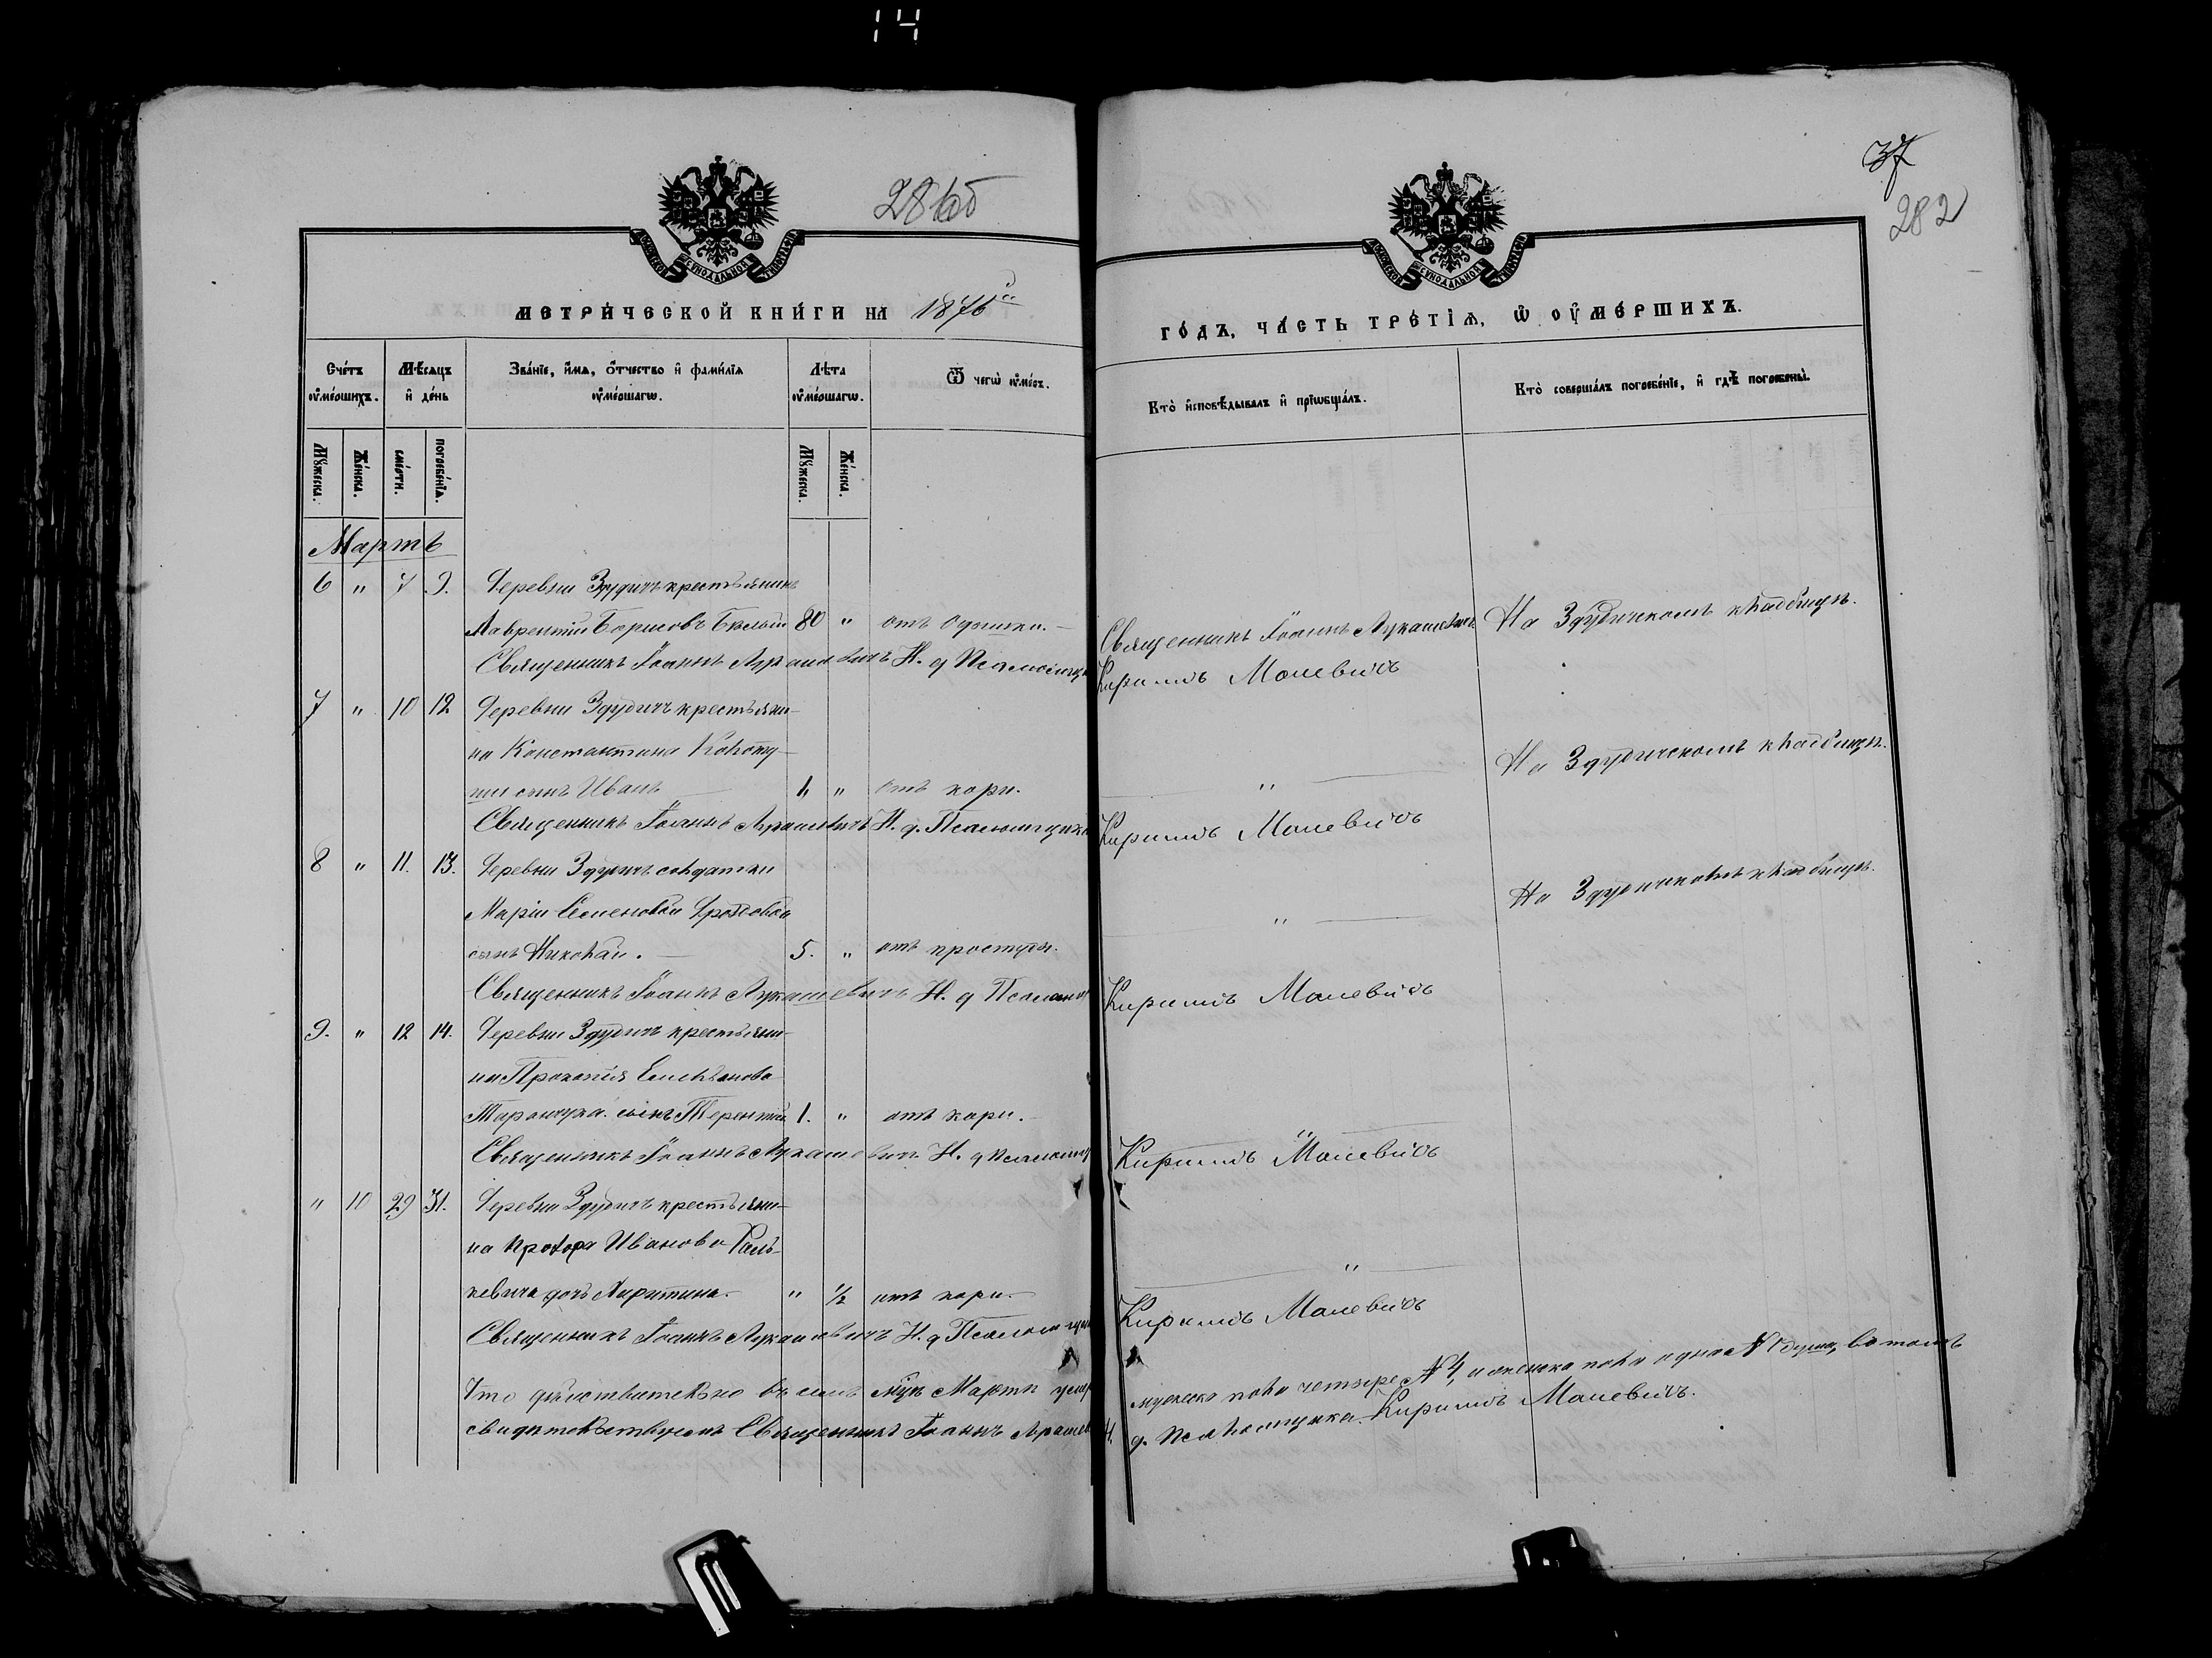 14
37
282
МЕТРИ́ЧЕСКОЙ КНИ́ГИ НА 1876
ГО́ДЪ, ЧА́СТЬ ТРЕ́ТІѦ, Ѡ ОУ҆МЕ́РШИХЪ.
Сче́тъ оу҆ме́ршихъ.
Мѣ́сяцъ и҆ де́нь
Зва́нїе, и҆́мя, ѻ҆́тчество и҆ фами́лїя оу҆ме́ршагѡ.
Лѣ́та оу҆ме́ршагѡ.
Ѿ чегѡ̀ оу҆́меръ.
Кто̀ и҆сповѣ́дывалъ и҆ прїѡбща́лъ.
Кто̀ соверша́лъ погребе́нїе, и҆ гдѣ̀ погребены̀.
Мꙋ́жеска.
Же́нска.
сме́рти.
погребе́нїя.
Мꙋ́жеска.
Же́нска.
Мартъ
6 " 7 9. Деревни Здудичъ крестьянинъ
Лаврентій Борисовъ Бѣлый 80 " отъ одышки. Священникъ Іоаннъ Лукашевичъ На Здудичскомъ кладбищѣ.
Священникъ Іоаннъ Лукашевичъ И. д. Псаломщика Кириллъ Малевичъ
7 " 10 12 Деревни Здудичъ крестьяни-
на Константина
сынъ Иванъ 1, " отъ кори. " На Здудичскомъ кладбищѣ.
Священникъ Іоаннъ Лукашевичъ И. д. Псаломщика Кириллъ Малевичъ
8 " 11. 13. Деревни Здудичъ солдатки
Маріи Семеновой " На Здудичскомъ кладбищѣ.
сынъ Николай. 5. " отъ простуды.
Священникъ Іоаннъ Лукашевичъ И. д. Псаломщ Кириллъ Малевичъ
9. " 12 14. Деревни Здудичъ крестьяни-
на Прокопія
Таранчука сынъ Терентій 1. " отъ кори. "
Священникъ Іоаннъ Лукашевичъ И. д. Псаломщ Кириллъ Малевичъ
" 10 29 31. Деревни Здудичъ крестьяни-
на Прохора Иванова
кевича дочь Харитина. " 1/2 отъ кори. "
Священникъ Іоаннъ Лукашевичъ И. д. Псаломщ Кириллъ Малевичъ
Что дѣйствительно въ семъ Мартѣ умер мужеска пола четыре № 4, и женска пола одна № 1 душа, въ томъ
свидѣтельствуемъ Священникъ Іоаннъ Лукашев И. д. Псаломщика Кириллъ Малевичъ.